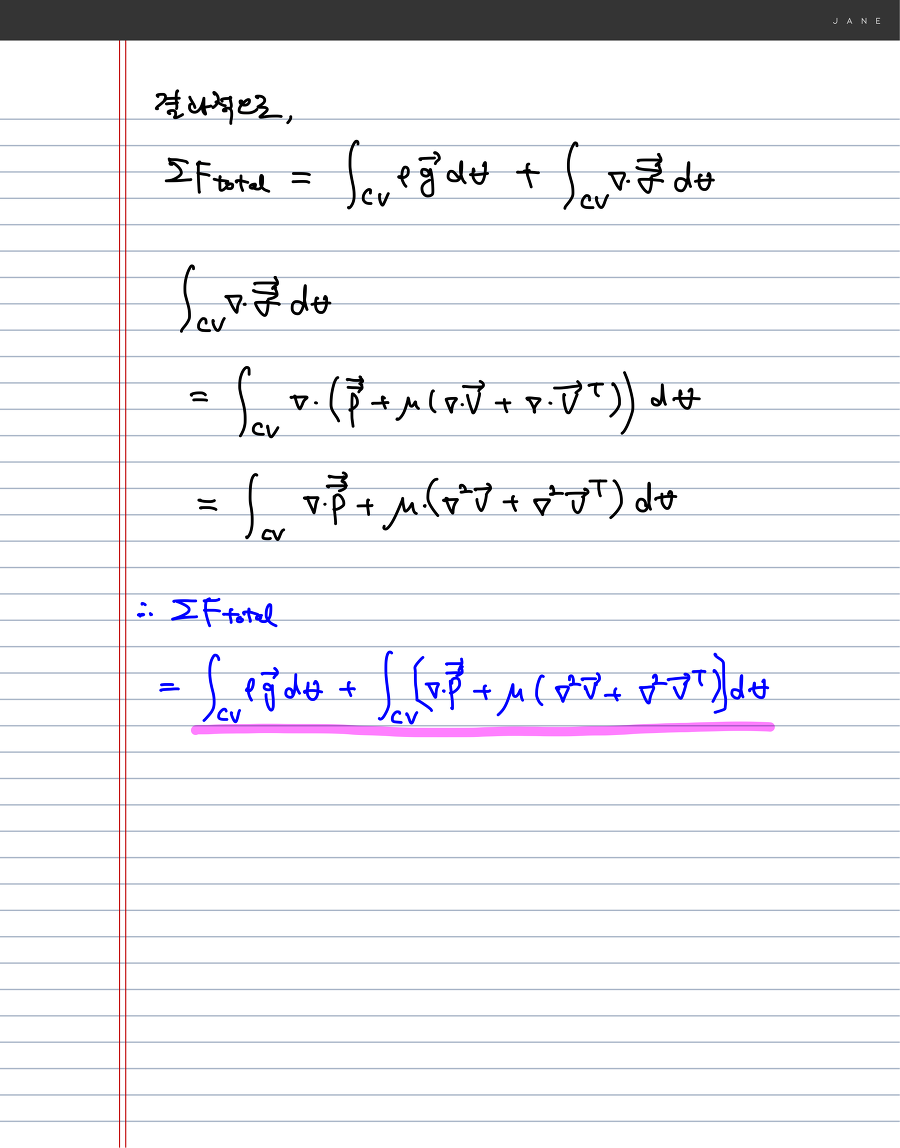 JANE
결과적으로,
ΣF_total = ∫_CV ρg⃗ dV̶ + ∫_CV ∇·σ⃗⃗ dV̶
∫_CV ∇·σ⃗⃗ dV̶
= ∫_CV ∇·(p⃗⃗ + μ(∇·V⃗ + ∇·V⃗^T)) dV̶
= ∫_CV ∇·p⃗⃗ + μ·(∇²V⃗ + ∇²V⃗^T) dV̶
∴ ΣF_total
= ∫_CV ρg⃗ dV̶ + ∫_CV [∇·p⃗⃗ + μ(∇²V⃗ + ∇²V⃗^T)] dV̶